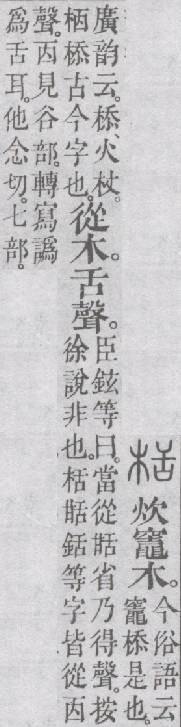 栝
炊竈木。
今俗語云
竈㮇是也。
廣韵云。㮇、火杖。
栖㮇古今字也。
從木。舌聲。
臣鉉等曰。當從甛省乃得聲。按
徐說非也。栝甛銛等字皆從㐁
聲。㐁見谷部。轉寫譌
爲舌耳。他念切。七部。